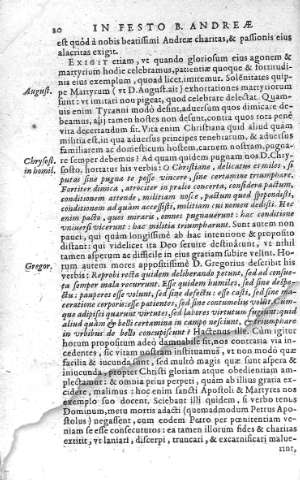 20 IN FESTO B. ANDREÆ
est quod à nobis beatissimi Andreæ charitas, & passionis eius
alacritas exigit.
EXIGIT etiam, vt quando gloriosum eius agonem &
martyrium hodie celebramus, patientiæ quoque & fortitudi-
nis eius exemplum, quoad licet, imitemur. Solēnitates quip-
August. pe Martyrum (vt D. August. ait) exhortationes martyriorum
sunt: vt imitari non pigeat, quod celebrare delectat. Quam-
uis enim Tyranni modo desint, aduersum quos dimicare de-
beamus, alij tamen hostes non desunt, contra quos tota penè
vita decertandum sit. Vita enim Christiana quid aliud quàm
militia est, in qua aduersus principes tenebrarum, & aduersus
familiarem ac domesticum hostem, carnem nostram, pugna-
Chrysost. re semper debemus? Ad quam quidem pugnam nos D. Chry-
in homil. sost. hortatur his verbis: O Christiane, delicatus es miles, si
putas sine pugna te posse vincere, sine certamine triumphare.
Fortiter dimica, atrociter in prælio concerta, considera pactum,
conditionem attende, militiam nosce, pactum quod spopondisti,
conditionem ad quam accessisti, militiam cui nomen dedisti. Hoc
enim pacto, quos miraris, omnes pugnauerunt: hac conditione
vniuersi vicerunt: hac militia triumpharunt. Sunt autem non
pauci, qui quàm longissimè ab hac intentione & proposito
distant: qui videlicet ita Deo seruire destinârunt, vt nihil
tamen asperum ac difficile in eius gratiam subire velint. Ho-
Gregor. rum autem mores appositissimè D. Gregorius describit his
verbis: Reprobi recta quidem deliberando petunt, sed ad consue-
ta semper mala recurrunt. Esse quidem humiles, sed sine despe-
ctu: pauperes esse volunt, sed sine defectu: esse casti, sed sine ma-
ceratione corporis: esse patientes, sed sine contumelia volunt. Cum-
que adipisci quærunt virtutes, sed labores virtutum fugiunt: quid
aliud quàm & belli certamina in campo nesciunt, & triumphare
in vrbibus de bello concupiscunt? Hactenus ille. Cùm igitur
horum propositum adeò damnabile sit, nos contraria via in-
cedentes, sic vitam nostram instituamus, vt non modò quæ
facilia & iucunda sunt, sed multò magis quæ sunt aspera &
iniucunda, propter Christi gloriam atque obedientiam am-
plectamur: & omnia prius perpeti, quàm ab illius gratia exci-
dere, malimus: hoc enim sancti Apostoli & Martyres nos
exemplo suo docent. Sciebant illi quidem, si verbo tenus
Dominum, metu mortis adacti (quemadmodum Petrus Apo-
stolus) negassent, cum eodem Petro per pœnitentiam ve-
niam se esse consecuturos: ea tamen illorum fides & charitas
extitit, vt laniari, discerpi, truncari, & excarnificari malue-
rint,